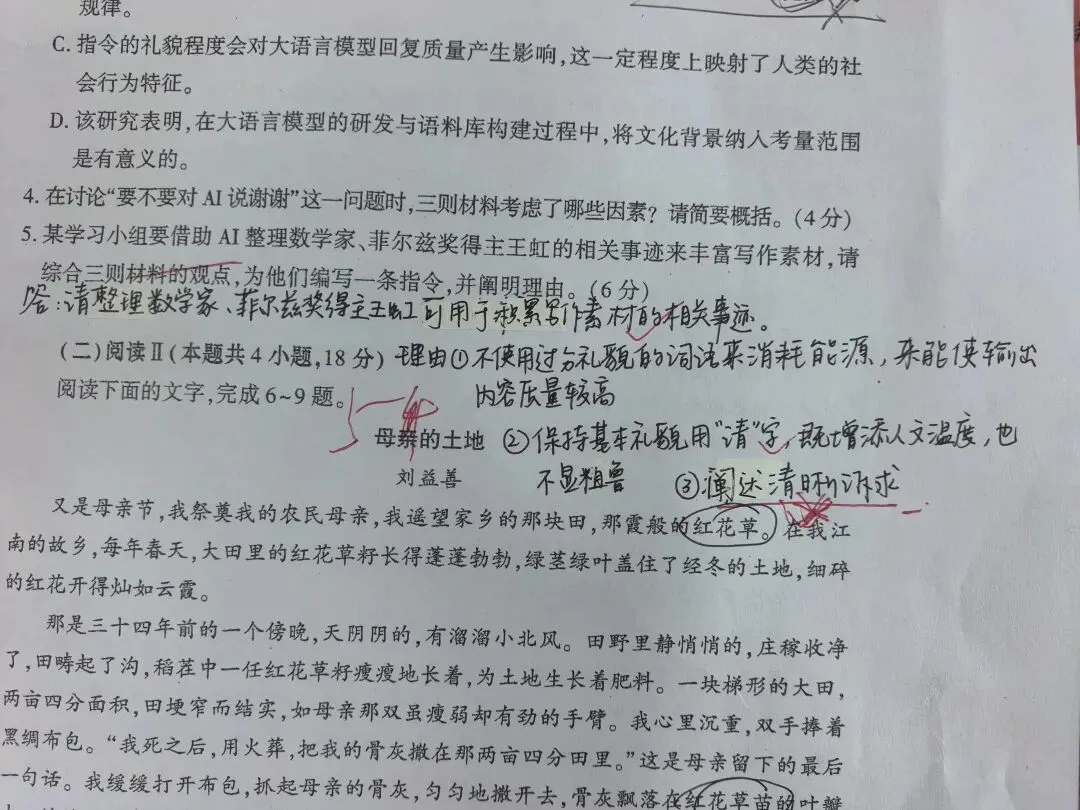 规律。
C. 指令的礼貌程度会对大语言模型回复质量产生影响,这一定程度上映射了人类的社
会行为特征。
D. 该研究表明,在大语言模型的研发与语料库构建过程中,将文化背景纳入考量范围
是有意义的。
4. 在讨论“要不要对 AI 说谢谢”这一问题时,三则材料考虑了哪些因素? 请简要概括。(4 分)
5. 某学习小组要借助 AI 整理数学家、菲尔兹奖得主王虹的相关事迹来丰富写作素材,请
综合三则材料的观点,为他们编写一条指令,并阐明理由。(6 分)
答:请整理数学家、菲尔兹奖得主王虹可用于积累写作素材的相关事迹。
(二)阅读Ⅱ(本题共 4 小题,18 分)
理由①不使用过分礼貌的词语来消耗能源,来能使输出
内容质量较高
阅读下面的文字,完成 6~9 题。
母亲的土地
②保持基本礼貌用“请”字,既增添人文温度,也
不显粗鲁
刘益善
③阐达清晰诉求
又是母亲节,我祭奠我的农民母亲,我遥望家乡的那块田,那霞般的红花草。在我江
南的故乡,每年春天,大田里的红花草籽长得蓬蓬勃勃,绿茎绿叶盖住了经冬的土地,细碎
的红花开得灿如云霞。
那是三十四年前的一个傍晚,天阴阴的,有溜溜小北风。田野里静悄悄的,庄稼收净
了,田畴起了沟,稻茬中一任红花草籽瘦瘦地长着,为土地生长着肥料。一块梯形的大田,
两亩四分面积,田埂窄而结实,如母亲那双虽瘦弱却有劲的手臂。我心里沉重,双手捧着
黑绸布包。“我死之后,用火葬,把我的骨灰撒在那两亩四分田里。”这是母亲留下的最后
一句话。我缓缓打开布包,抓起母亲的骨灰,匀匀地撒开去,骨灰飘落在红花草苗的叶瓣